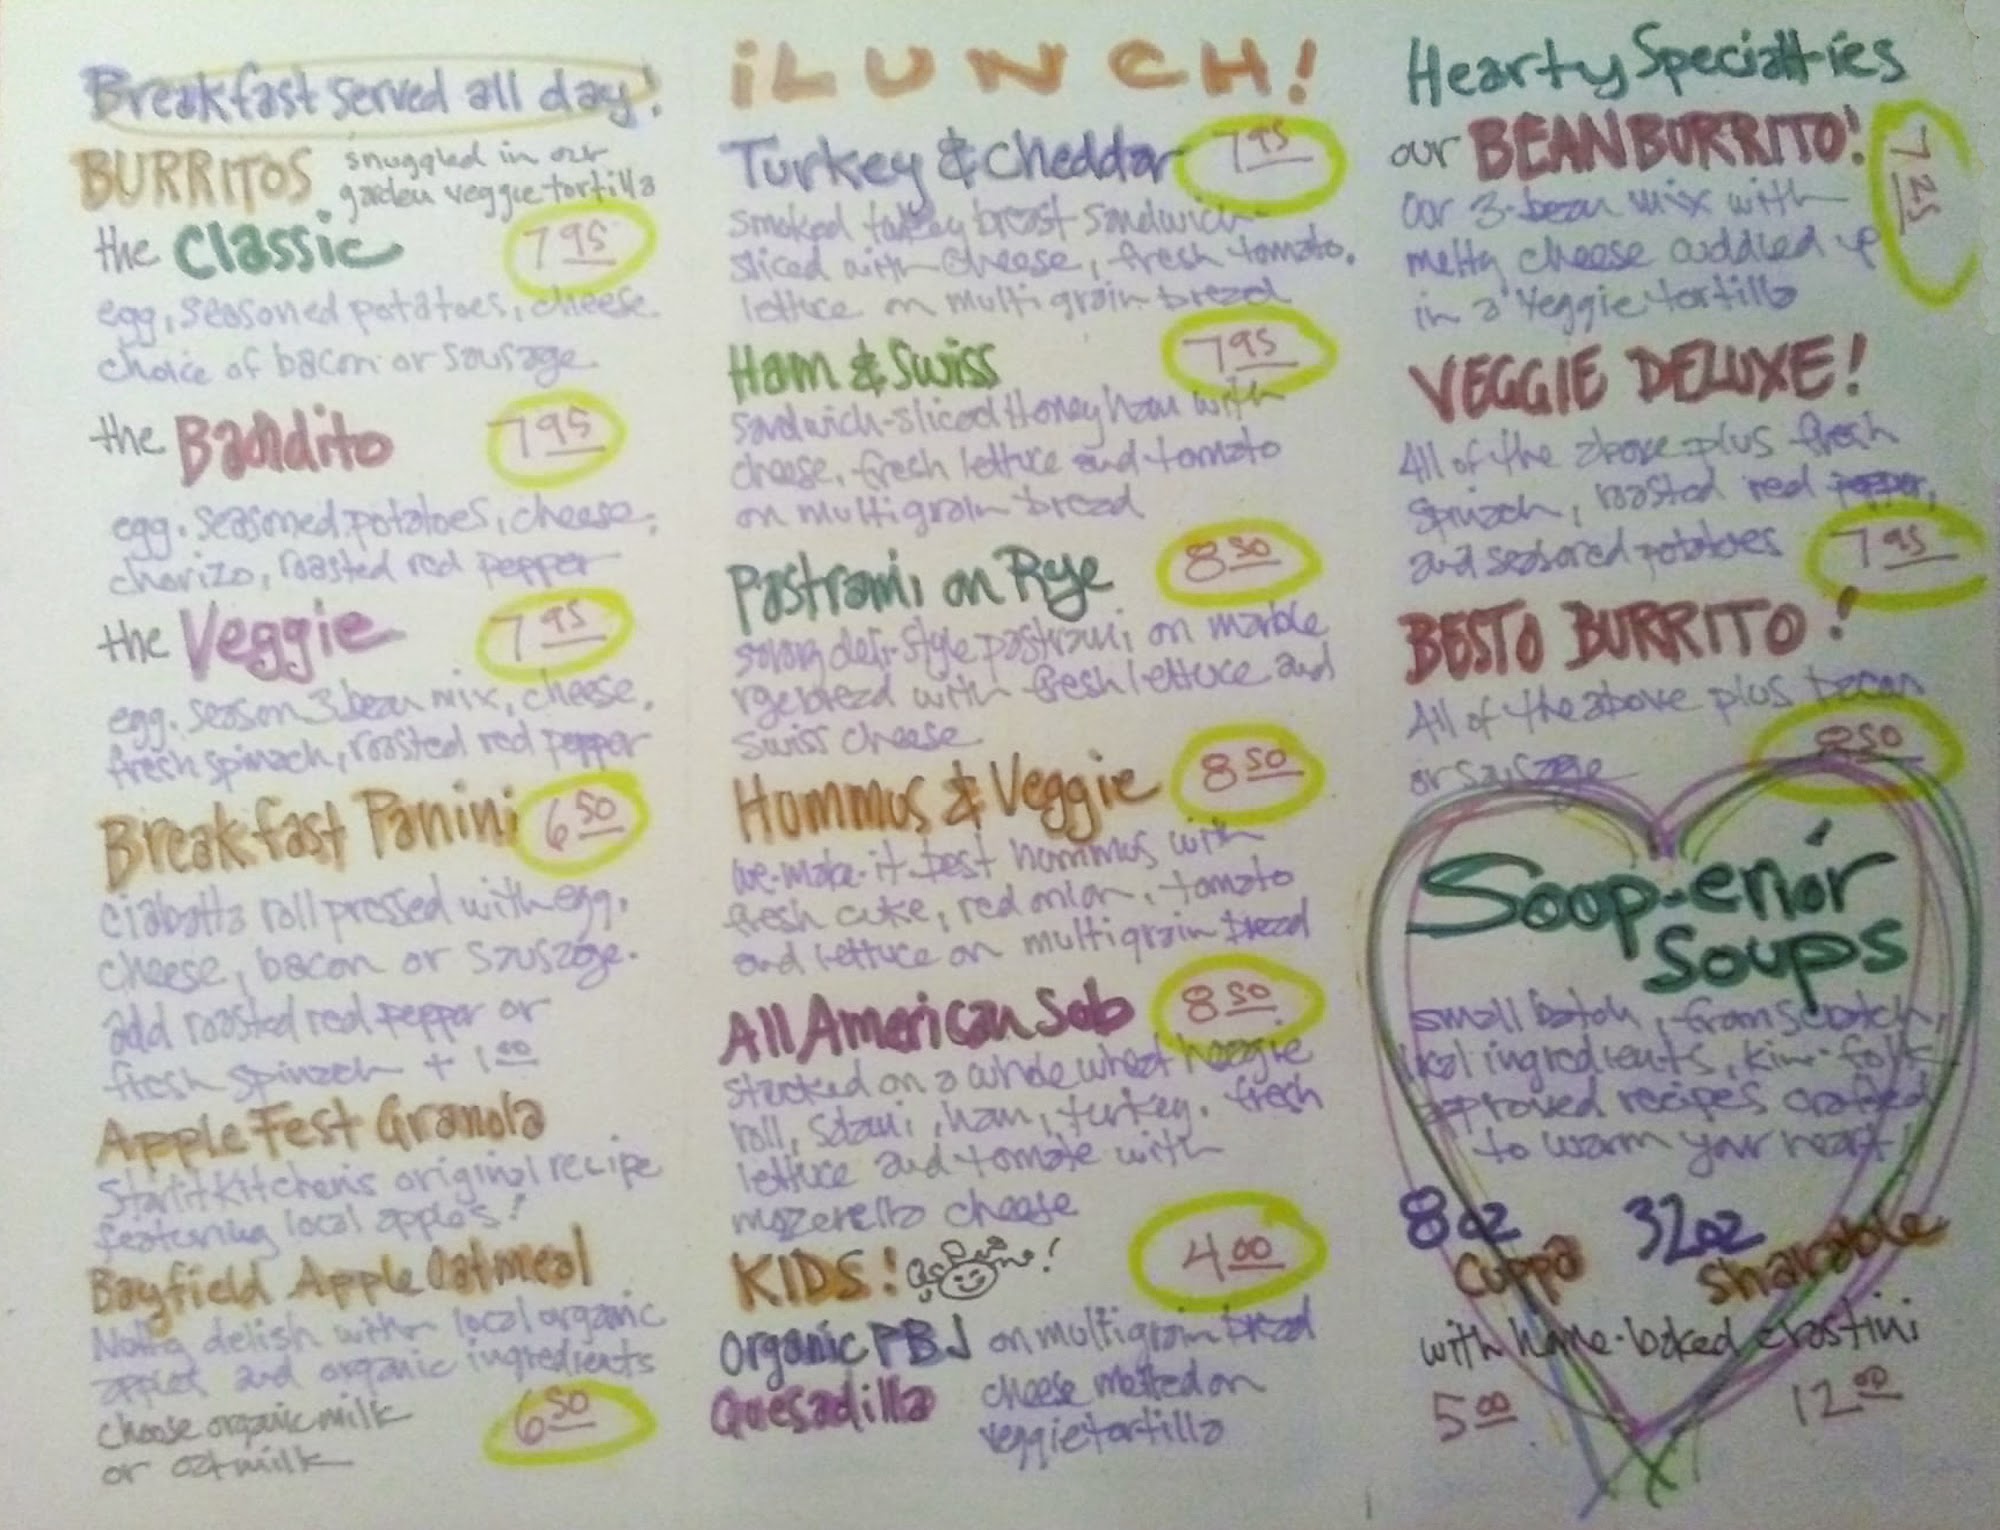 Breakfast served all day!
BURRITOS snuggled in our
garden veggie tortilla
the Classic 7 95
egg, seasoned potatoes, cheese.
choice of bacon or sausage
the Bandito 7 95
egg. seasoned potatoes, cheese,
chorizo, roasted red pepper
the Veggie 7 95
egg. season 3 bean mix, cheese,
fresh spinach, roasted red pepper
Breakfast Panini 6 50
ciabatta roll pressed with egg,
cheese, bacon or sausage.
add roasted red pepper or
fresh spinach + 1 00
Apple Fest Granola
Starlit Kitchen's original recipe
featuring local apples!
Bayfield Apple Oatmeal
delish with local organic
apples and organic ingredients
choose organic milk
or oatmilk 6 50
¡LUNCH!
Turkey & Cheddar 7 95
smoked turkey breast sandwich
sliced with cheese, fresh tomato,
lettuce on multigrain bread
Ham & Swiss 7 95
sandwich-sliced Honey ham with
cheese, fresh lettuce and tomato
on multigrain bread
Pastrami on Rye 8 50
deli-style pastrami on marble
rye bread with fresh lettuce and
swiss cheese
Hummus & Veggie 8 50
we-make-it-best hummus with
fresh cuke, red onion, tomato
and lettuce on multigrain bread
All American Sub 8 50
stacked on a whole wheat hoagie
roll, salami, ham, turkey, fresh
lettuce and tomate with
mozerella cheese
KIDS! 4 00
Organic PBJ on multigrain bread
Quesadilla cheese melted on
veggie tortilla
Hearty Specialties
our BEAN BURRITO! 7 25
our 3-bean mix with
melty cheese cuddled up
in a veggie tortilla
VEGGIE DELUXE!
All of the above plus fresh
spinach, roasted red pepper,
and seasored potatoes 7 95
BESTO BURRITO!
All of the above plus bacon
or sausage 8 50
Soop-erior
Soups
small batch, from scratch,
local ingredients, kin-folk
approved recipes crafted
to warm your heart!
8 oz 32 oz
Cuppa Sharable
with home-baked crostini
5 00 12 00